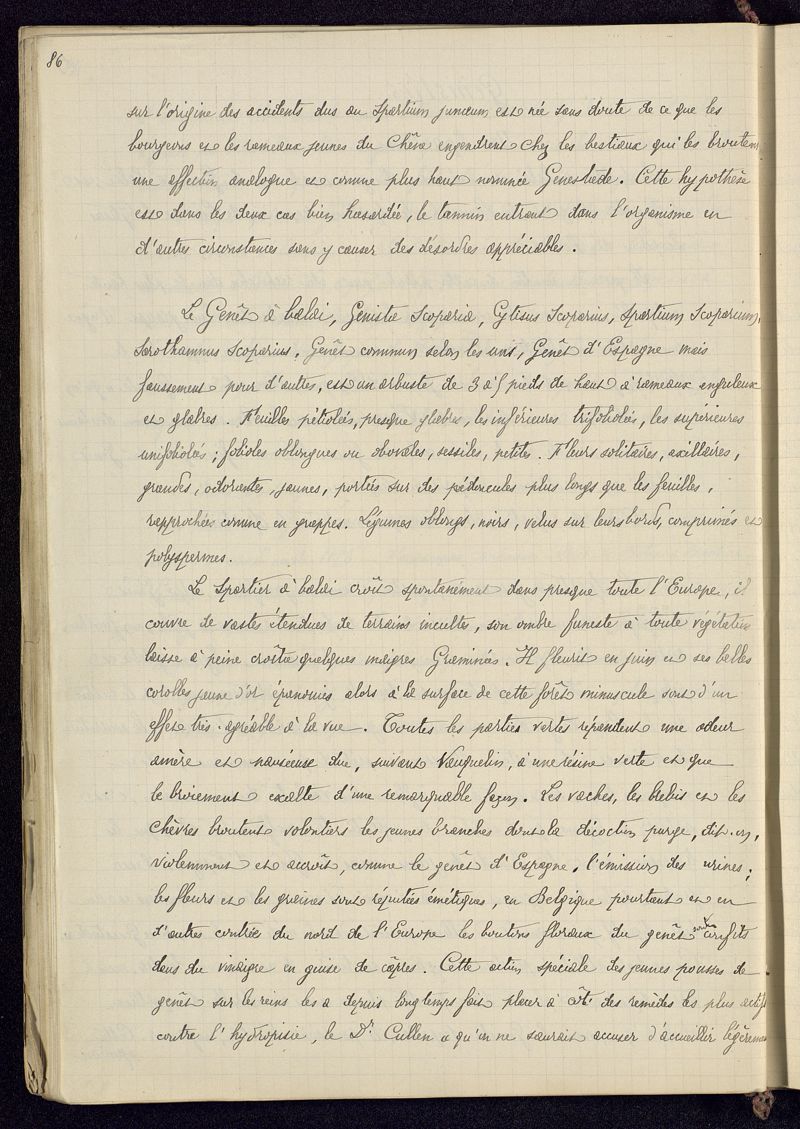 86
sur l'origine des accidents dus au Spartium junceum est née sans doute de ce que les
bourgeons et les rameaux jeunes du Chêne engendrent chez les bestiaux qui les broutent
une affection analogue et comme plus haut nommée Genestade. Cette hypothèse
est dans les deux cas bien hasardée, le tannin entrant dans l'organisme en
d'autres circonstances sans y causer des désordres appréciables.
Le Genêt à balai, Genista Scoparia, Cytisus Scoparius, Spartium Scoparium,
Sarothamnus Scoparius, Genêt commun selon les uns, Genêt d'Espagne mais
faussement pour d'autres, est un arbuste de 3 à 5 pieds de haut à rameaux anguleux
et glabres. Feuilles pétiolées, presque glabres, les inférieures trifoliolées, les supérieures
unifoliolées; folioles oblongues ou obovales, sessiles, petites. Fleurs solitaires, axillaires,
grandes, odorantes, jaunes, portées sur des pédoncules plus longs que les feuilles,
rapprochées comme en grappes. Légumes oblongs, noirs, velus sur leurs bords, comprimés et
polyspermes.
Le Spartier à balai croît spontanément dans presque toute l'Europe, il
couvre de vastes étendues de terrains incultes, son ombre funeste à toute végétation
laisse à peine croître quelques maigres Graminées. Il fleurit en juin et ses belles
corolles jaune d'or épanouies alors à la surface de cette forêt minuscule sont d'un
effet très-agréable à la vue. Toutes les parties vertes répandent une odeur
amère et nauséeuse due, suivant Vauquelin, à une résine verte et que
le broiement exalte d'une remarquable façon. Les vaches, les brebis et les
chèvres broutent volontiers les jeunes branches dont la décoction purge, dit-on,
violemment et accroît, comme le genêt d'Espagne, l'émission des urines;
les fleurs et les graines sont réputées émétiques, en Belgique pourtant et en
d'autres contrées du nord de l'Europe les boutons floraux du genêt sont confits
dans du vinaigre en guise de câpres. Cette action spéciale des jeunes pousses de
genêt sur les reins les a depuis longtemps fait placer à côté des remèdes les plus actifs
contre l'hydropisie, le Dr. Cullen a qu'on ne saurait accuser d'accueillir légèrement